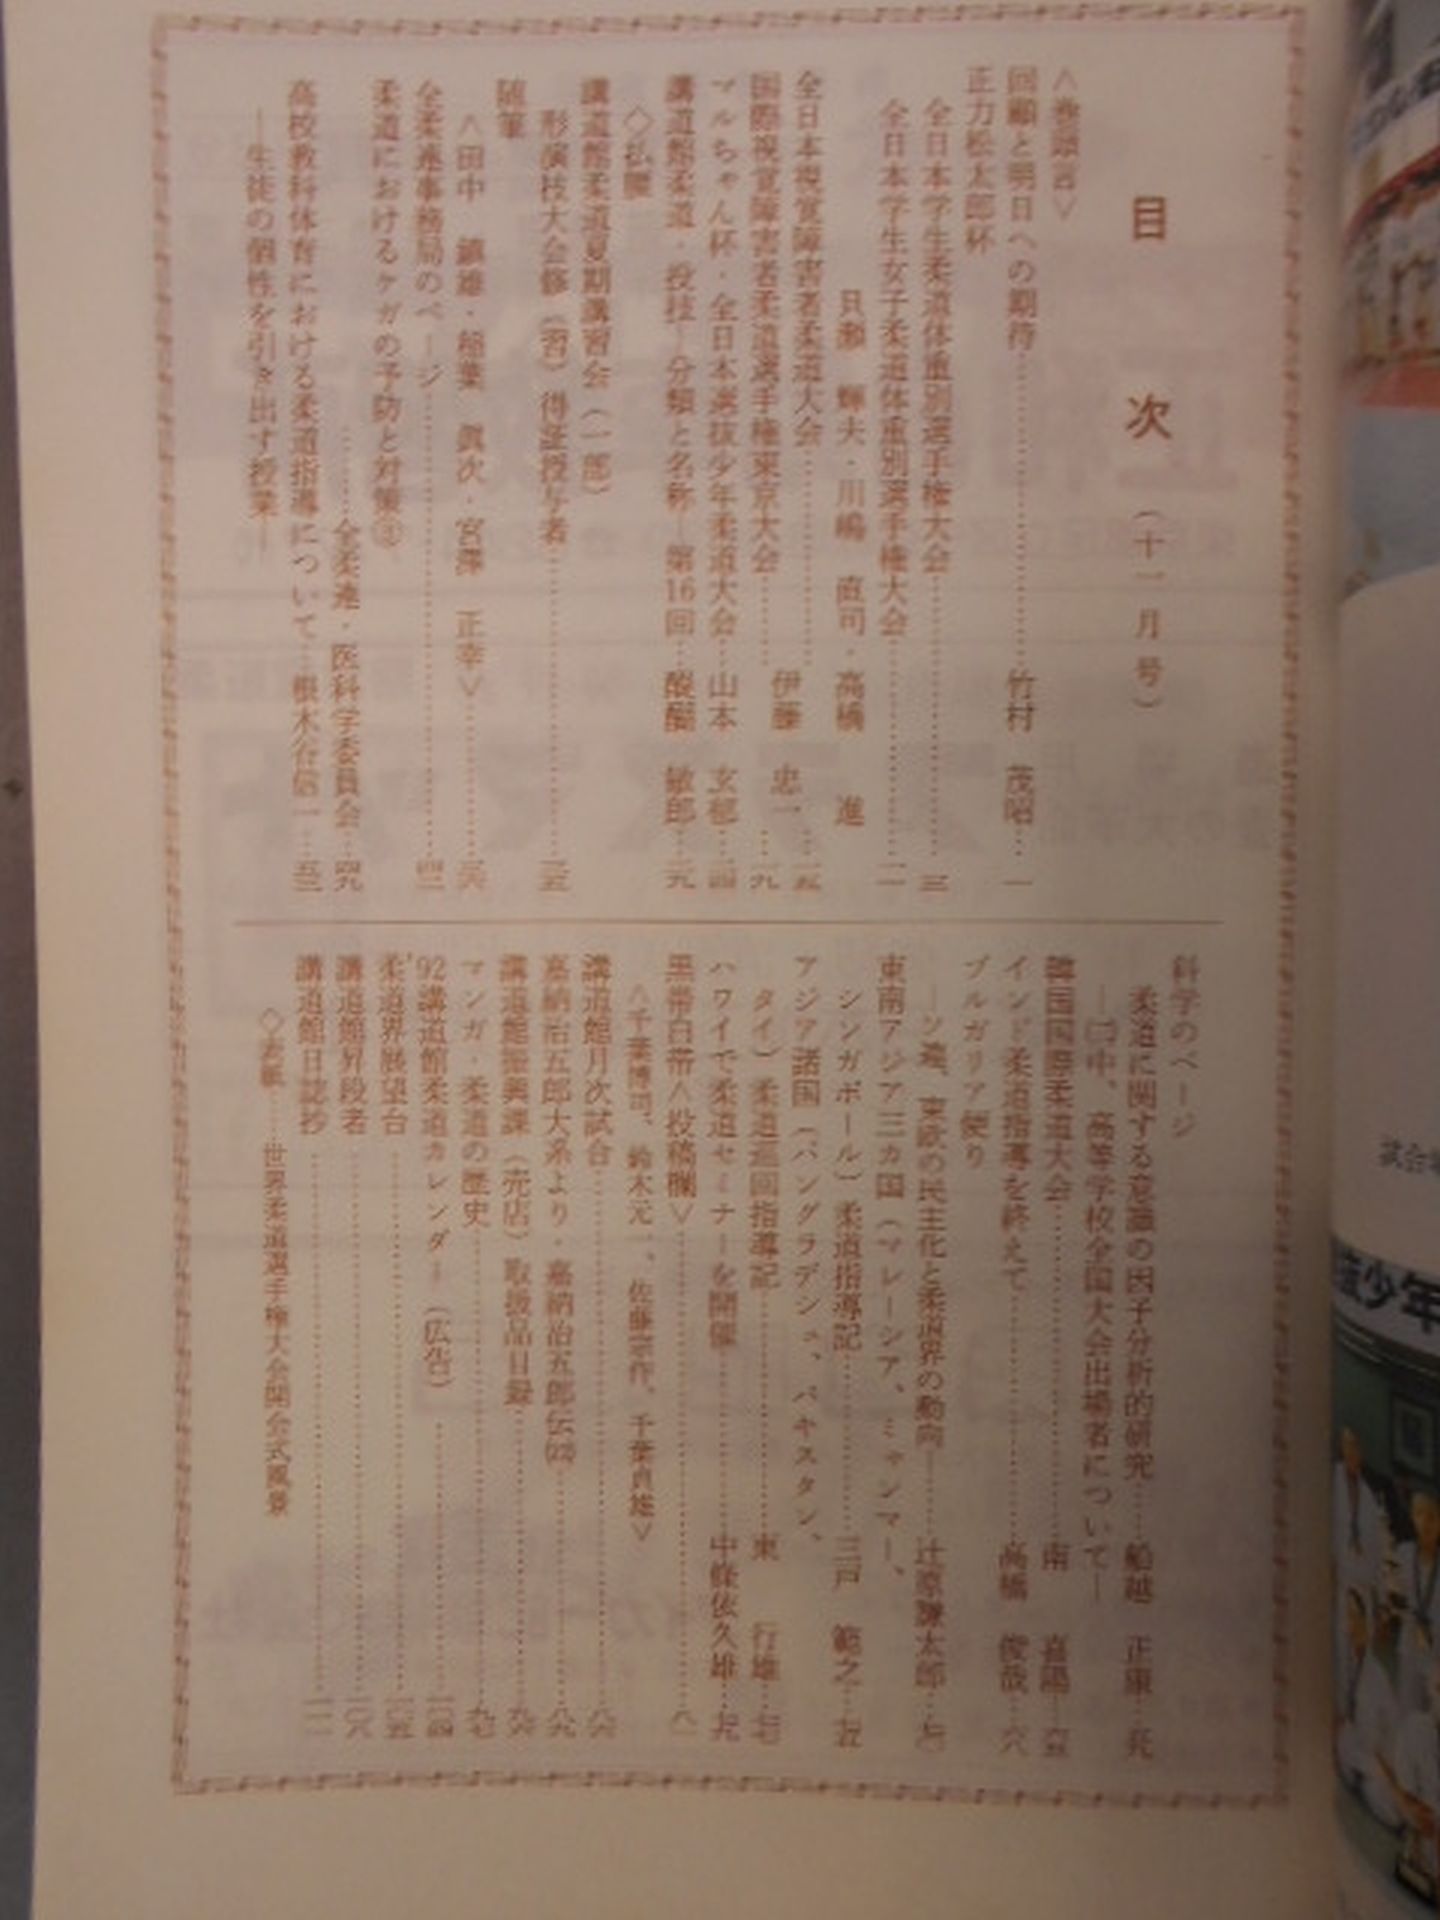 目次（十一月号）
＜巻頭言＞
回顧と明日への期待……竹村 茂昭…一
正力松太郎杯
全日本学生柔道体重別選手権大会……三
全日本学生女子柔道体重別選手権大会……一一
貝瀬 輝夫・川嶋 直司・高橋 進
全日本視覚障害者柔道大会……一五
国際視覚障害者柔道選手権東京大会……伊藤 忠一…一九
マルちゃん杯・全日本選抜少年柔道大会…山本 玄郁…二四
講道館柔道・投技―分類と名称―第16回…醍醐 敏郎…二九
◇払腰
講道館柔道夏期講習会（一部）
形演技大会修（習）得証授与者……三五
随筆
＜田中 鎮雄・稲葉 眞次・宮澤 正幸＞……三六
全柔連事務局のページ……四二
柔道におけるケガの予防と対策
……全柔連・医科学委員会…四九
高校教科体育における柔道指導について…根木谷信一…五三
―生徒の個性を引き出す授業―
科学のページ
柔道に関する意識の因子分析的研究……船越 正康…五九
中、高等学校全国大会出場者について―
韓国国際柔道大会……南 喜陽…六五
インド柔道指導を終えて……高橋 俊哉…六八
ブルガリア便り
―ソ連、東欧の民主化と柔道界の動向―……辻原謙太郎…七一
東南アジア三カ国（マレーシア、ミャンマー、
シンガポール）柔道指導記……三戸 範之…七五
アジア諸国（バングラデシュ、パキスタン、
タイ）柔道巡回指導記……東 行雄…七七
ハワイで柔道セミナーを開催……中條依久雄…七九
黒帯白帯＜投稿欄＞……八一
＜千葉博司、鈴木元一、佐藤宗作、千葉貞雄＞
講道館月次試合……八六
嘉納治五郎大系より・嘉納治五郎伝……八九
講道館振興課（売店）取扱品目録……九六
マンガ・柔道の歴史……九七
'92講道館柔道カレンダー（広告）……一〇四
柔道界展望台……一〇五
講道館昇段者……一〇八
講道館日誌抄……一一一
◇表紙……世界柔道選手権大会開会式風景
試合
抜少年